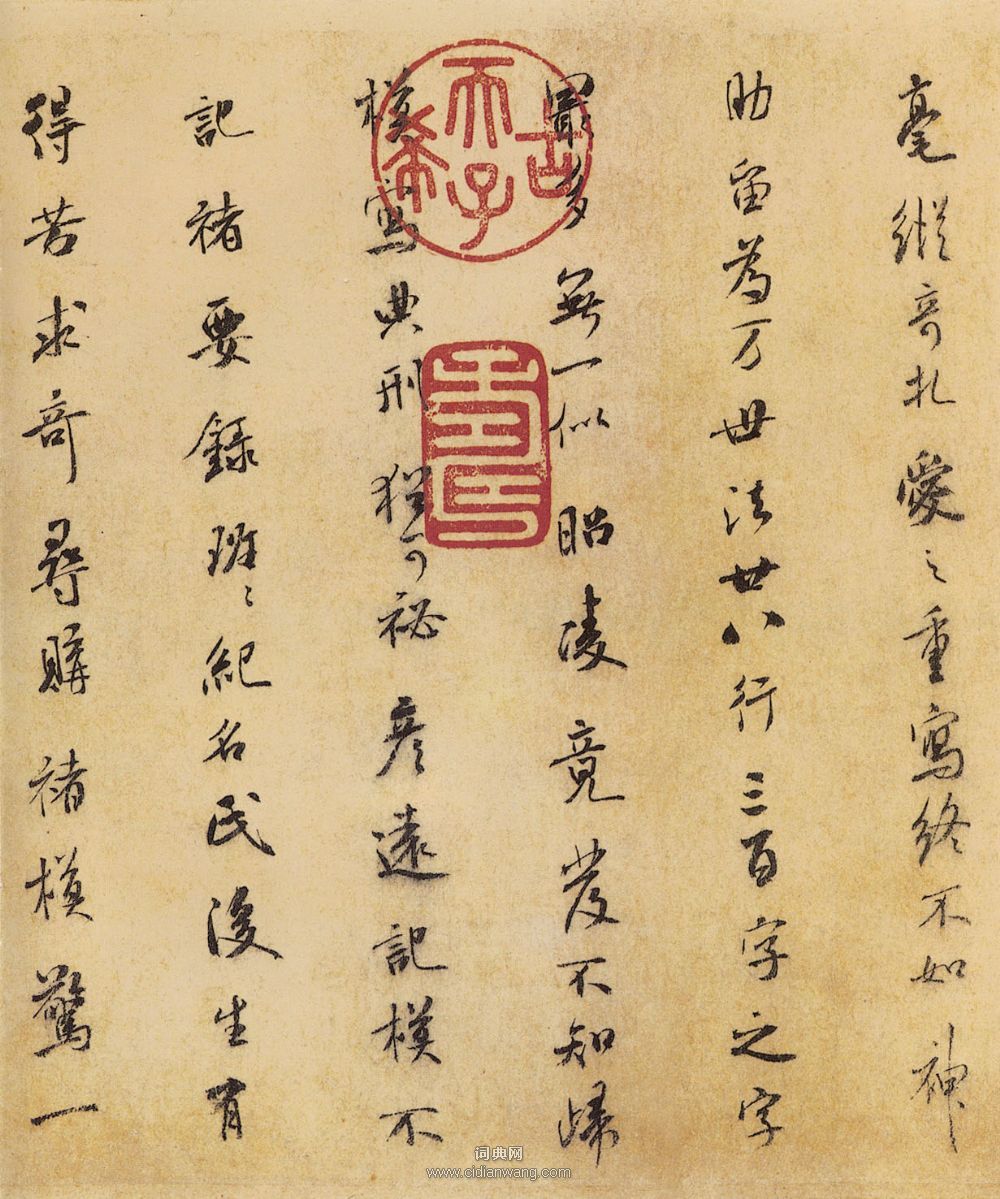 毫縱奇札愛之重寫終不如神
助留為万世法廿八行三百字之字
最多無一似昭陵竟發不知歸
模寫典刑猶可祕彦遠記模不
記褚要錄班〻紀名氏後生有
得苦求奇尋購褚模驚一
古希天子
壽
词典网
www.cidianwang.com